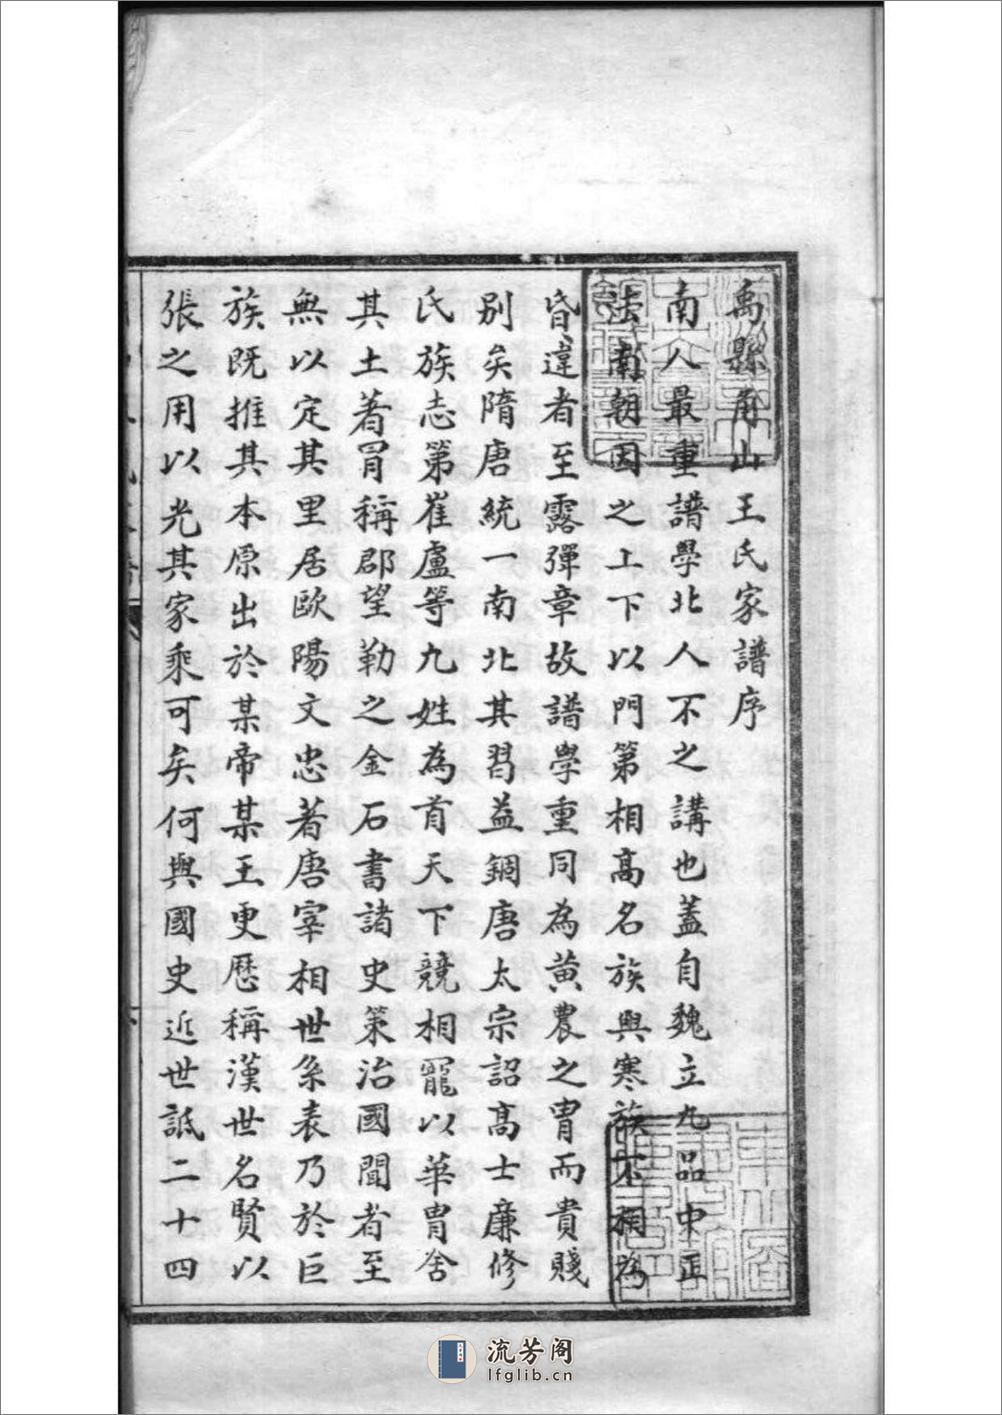 禹縣角山王氏家譜序
南人最重譜學北人不之講也蓋自魏立九品中正
法南朝因之上下以門第相高名族與寒族不相為
昏違者至露彈章故譜學重同為黃農之胄而貴賤
別矣隋唐統一南北其習益錮唐太宗詔高士廉修
氏族志第崔盧等九姓為首天下競相寵以華胄舍
其土著冐稱郡望勒之金石書諸史策治國聞者至
無以定其里居歐陽文忠著唐宰相世系表乃於巨
族既推其本原出於某帝某王更歷稱漢世名賢以
張之用以光其家乘可矣何與國史近世詆二十四
流芳阁
lfglib.cn